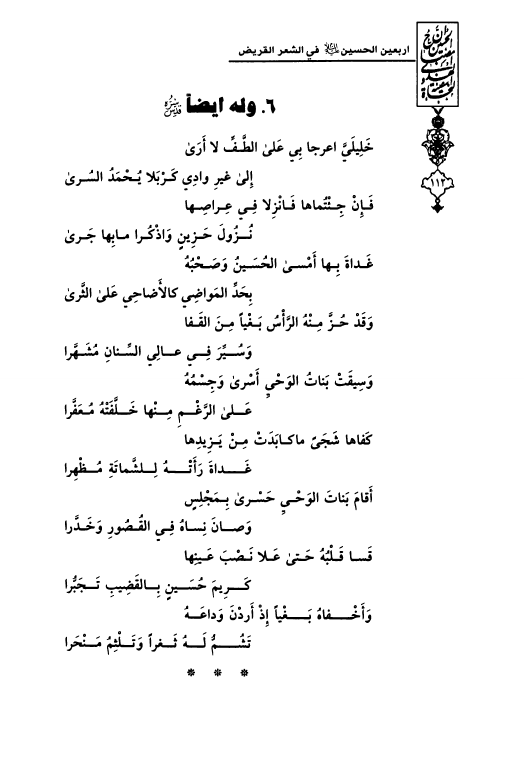 اربعين الحسين عليه السلام في الشعر القريض
١١٢
٦. وله ايضاً قدس سره
خَلِيلَيَّ اعرجا بِي عَلىٰ الطَّفِّ لا أَرَىٰ
إلىٰ غيرِ وادِي كَرْبَلا يُحْمَدُ السُرىٰ
فَإِنْ جِئْتُماها فَانْزِلا فِي عِراصِها
نُزُولَ حَزِينٍ وَاذْكُرا مابِها جَرىٰ
غَداةَ بِها أَمْسىٰ الحُسَينُ وَصَحْبُهُ
بِحَدِّ المَواضِي كالأَضاحِي عَلىٰ الثَّرىٰ
وَقَدْ حُزَّ مِنْهُ الرَّأْسُ بَغْياً مِنَ القَفا
وَسُيِّرَ فِي عالِي السِّنانِ مُشَهَّرا
وَسِيقَتْ بَناتُ الوَحْيِ أَسْرىٰ وَجِسْمُهُ
عَلىٰ الرَّغْمِ مِنْها خَلَّفَتْهُ مُعَفَّرا
كَفاها شَجَىً ماكابَدَتْ مِنْ يَزِيدِها
غَداةَ رَأَتْهُ لِلشَّماتَةِ مُظْهِرا
أَقامَ بَناتَ الوَحْيِ حَسْرىٰ بِمَجْلِسٍ
وَصانَ نِساهُ فِي القُصُورِ وَخَدَّرا
قَسا قَلْبُهُ حَتىٰ عَلا نَصْبَ عَينِها
كَرِيمَ حُسَينٍ بِالقَضِيبِ تَجَبُّرا
وَأَخْفاهُ بَغْياً إِذْ أَرَدْنَ وَداعَهُ
تَشُمُّ لَهُ ثَغراً وَتَلْثِمُ مَنْحَرا
* * *